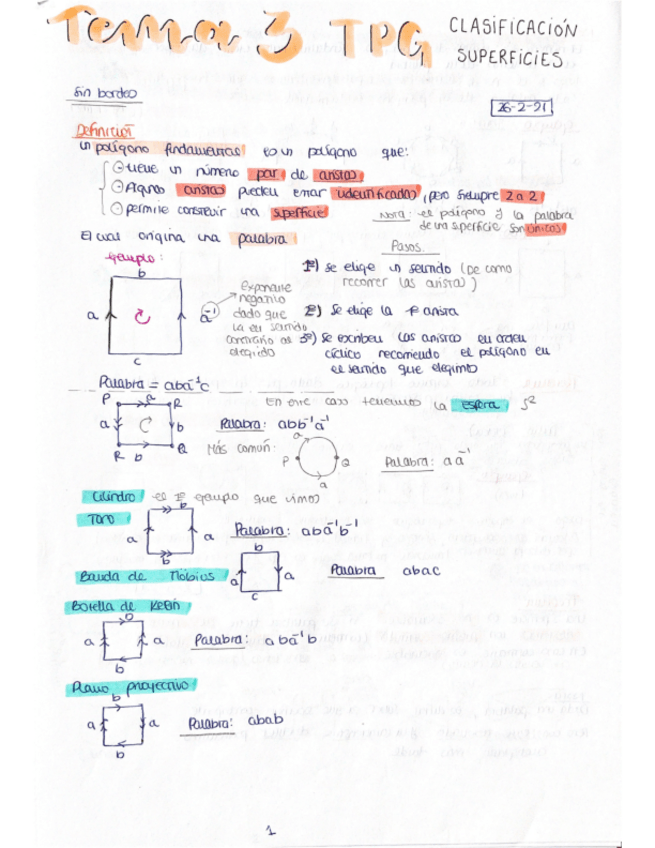 Tema 3 TPG CLASIFICACIÓN
SUPERFICIES
Sin bordes
26-2-21
Definición
Un polígono fundamental es un polígono que:
tiene un número par de aristas
Algunas aristas pueden estar identificadas, pero siempre 2 a 2
permite construir una superficie
Nota: el polígono y la palabra
de una superficie son únicos
El cual origina una palabra
Pasos.
ejemplo:
1º) Se elige un sentido (De como
recorrer las aristas)
b
a
a⁻¹
c
exponente
negativo
dado que
va en sentido
contrario al
elegido
2º) Se elige la 1ª arista
3º) Se escriben las aristas en orden
cíclico recorriendo el polígono en
el sentido que elegimos
Palabra = aba⁻¹c
En este caso tenemos la esfera S²
P a R
a b
R b Q
Palabra: abb⁻¹a⁻¹
Más común:
a
P Q
a
Palabra: aa⁻¹
Cilindro el 1º ejemplo que vimos
Toro
b
a a
b
Palabra: aba⁻¹b⁻¹
Banda de Möbius
b
a a
c
Palabra abac
Botella de Klein
b
a a
b
Palabra: aba⁻¹b
Plano proyectivo
b
a a
b
Palabra: abab
1